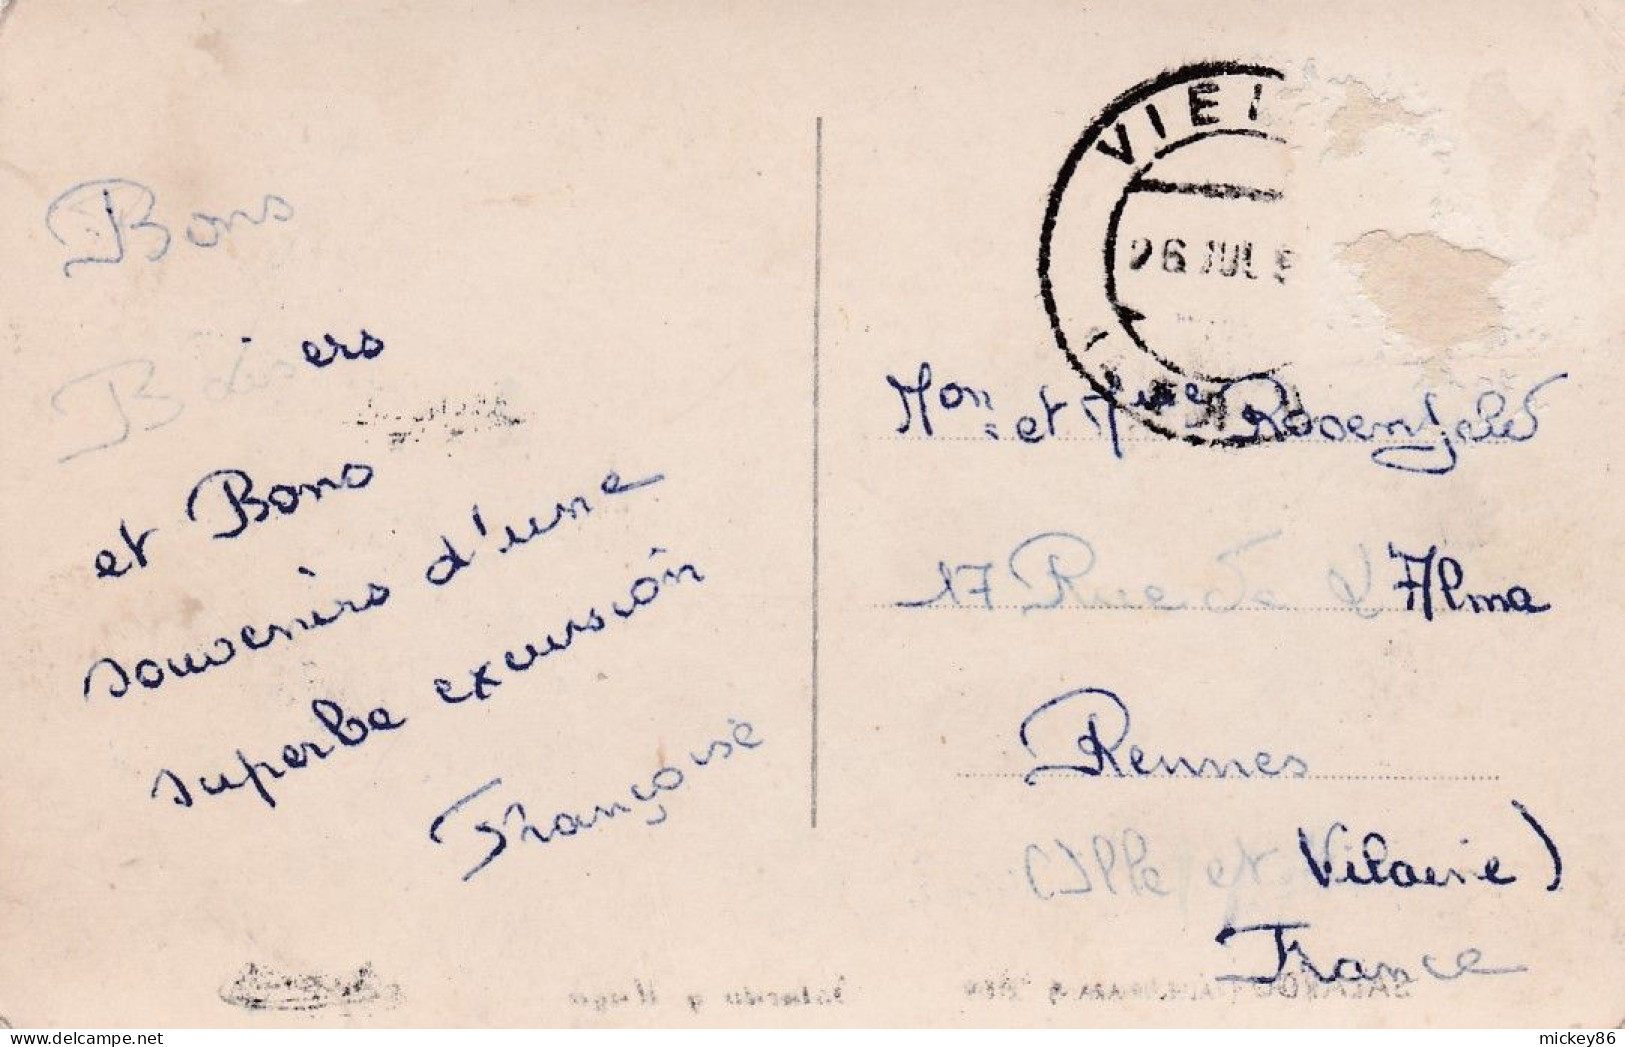 Bons
Baisers
et Bons
souvenirs d'une
superbe excursión
Françoise
VIEI
26 JUL 5
Mon et Mme
17 Rue de l'Alma
Rennes
(Ille et Vilaine)
France
mickey86